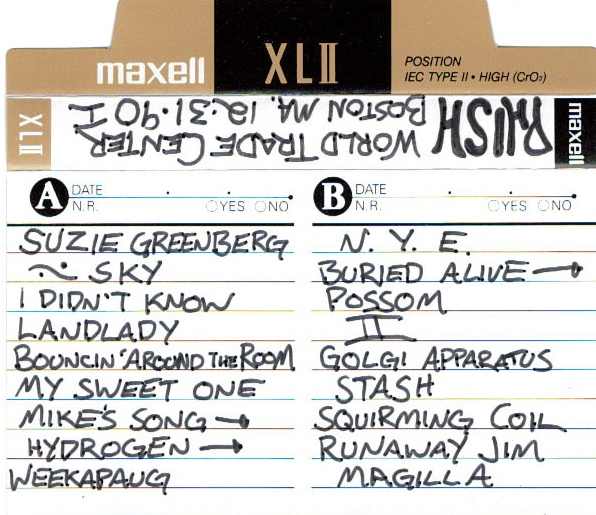 maxell XLII POSITION
IEC TYPE II • HIGH (CrO₂)
XLII
PHISH
WORLD TRADE CENTER
BOSTON MA, 12·31·90 I
maxell
A DATE . .
N.R. YES NO
SUZIE GREENBERG
~ SKY
I DIDN'T KNOW
LANDLADY
BOUNCIN' AROUND THE ROOM
MY SWEET ONE
MIKE'S SONG →
HYDROGEN →
WEEKAPAUG
B DATE . .
N.R. YES NO
N. Y. E.
BURIED ALIVE →
POSSOM
II
GOLGI APPARATUS
STASH
SQUIRMING COIL
RUNAWAY JIM
MAGILLA